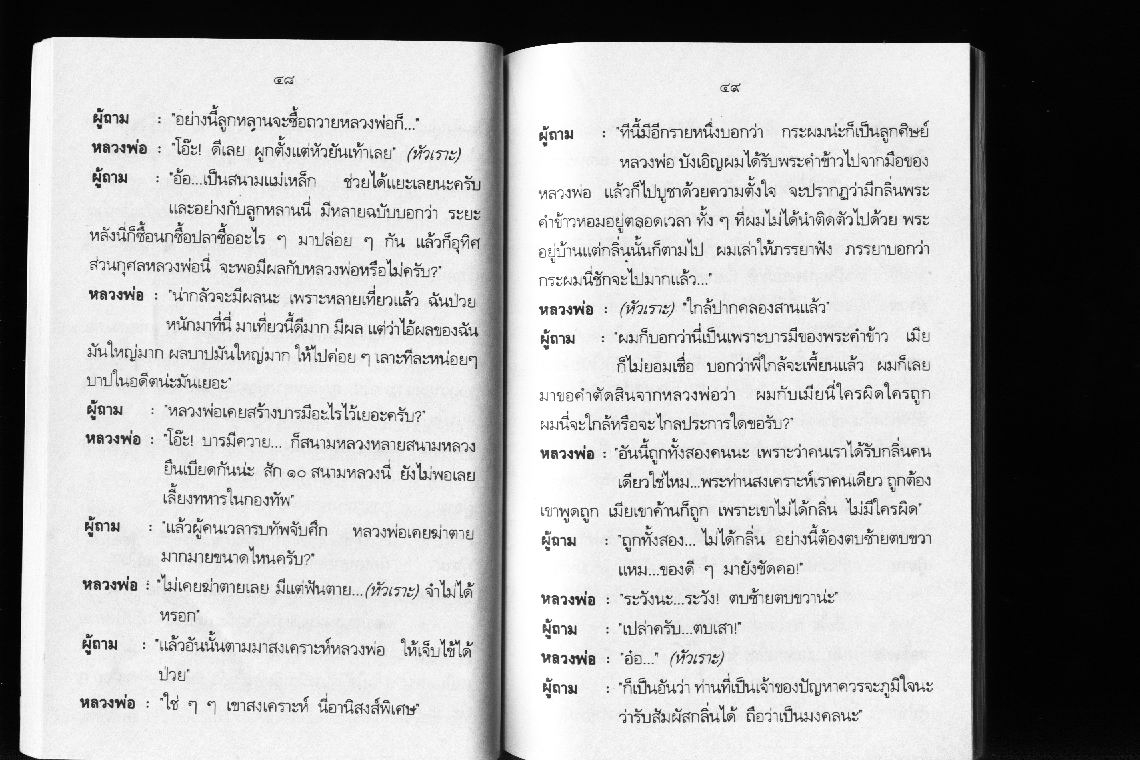 ๔๘
ผู้ถาม : "อย่างนี้ลูกหลานจะซื้อถวายหลวงพ่อก็..."
หลวงพ่อ : "โอ๊ะ! ดีเลย ผูกตั้งแต่หัวยันเท้าเลย" (หัวเราะ)
ผู้ถาม : "อ้อ...เป็นสนามแม่เหล็ก ช่วยได้แยะเลยนะครับ
และอย่างกับลูกหลานนี่ มีหลายฉบับบอกว่า ระยะ
หลังนี่ก็ซื้อนกซื้อปลาซื้ออะไร ๆ มาปล่อย ๆ กัน แล้วก็อุทิศ
ส่วนกุศลหลวงพ่อนี่ จะพอมีผลกับหลวงพ่อหรือไม่ครับ?"
หลวงพ่อ : "น่ากลัวจะมีผลนะ เพราะหลายเที่ยวแล้ว ฉันป่วย
หนักมาที่นี่ มาเที่ยวนี้ดีมาก มีผล แต่ว่าไอ้ผลของฉัน
มันใหญ่มาก ผลบาปมันใหญ่มาก ให้ไปค่อย ๆ เลาะทีละหน่อยๆ
บาปในอดีตน่ะมันเยอะ"
ผู้ถาม : "หลวงพ่อเคยสร้างบารมีอะไรไว้เยอะครับ?"
หลวงพ่อ : "โอ๊ะ! บารมีควาย... ก็สนามหลวงหลายสนามหลวง
ยืนเบียดกันน่ะ สัก ๑๐ สนามหลวงนี่ ยังไม่พอเลย
เลี้ยงทหารในกองทัพ"
ผู้ถาม : "แล้วผู้คนเวลารบทัพจับศึก หลวงพ่อเคยฆ่าตาย
มากมายขนาดไหนครับ?"
หลวงพ่อ : "ไม่เคยฆ่าตายเลย มีแต่ฟันตาย...(หัวเราะ) จำไม่ได้
หรอก"
ผู้ถาม : "แล้วอันนั้นตามมาสงเคราะห์หลวงพ่อ ให้เจ็บไข้ได้
ป่วย"
หลวงพ่อ : "ใช่ ๆ ๆ เขาสงเคราะห์ นี่อานิสงส์พิเศษ"
๔๙
ผู้ถาม : "ทีนี้มีอีกรายหนึ่งบอกว่า กระผมน่ะก็เป็นลูกศิษย์
หลวงพ่อ บังเอิญผมได้รับพระคำข้าวไปจากมือของ
หลวงพ่อ แล้วก็ไปบูชาด้วยความตั้งใจ จะปรากฏว่ามีกลิ่นพระ
คำข้าวหอมอยู่ตลอดเวลา ทั้ง ๆ ที่ผมไม่ได้นำติดตัวไปด้วย พระ
อยู่บ้านแต่กลิ่นนั้นก็ตามไป ผมเล่าให้ภรรยาฟัง ภรรยาบอกว่า
กระผมนี่ชักจะไปมากแล้ว..."
หลวงพ่อ : (หัวเราะ) "ใกล้ปากคลองสานแล้ว"
ผู้ถาม : "ผมก็บอกว่านี่เป็นเพราะบารมีของพระคำข้าว เมีย
ก็ไม่ยอมเชื่อ บอกว่าพี่ใกล้จะเพี้ยนแล้ว ผมก็เลย
มาขอคำตัดสินจากหลวงพ่อว่า ผมกับเมียนี่ใครผิดใครถูก
ผมนี่จะใกล้หรือจะไกลประการใดขอรับ?"
หลวงพ่อ : "อันนี้ถูกทั้งสองคนนะ เพราะว่าคนเราได้รับกลิ่นคน
เดียวใช่ไหม...พระท่านสงเคราะห์เราคนเดียว ถูกต้อง
เขาพูดถูก เมียเขาค้านก็ถูก เพราะเขาไม่ได้กลิ่น ไม่มีใครผิด"
ผู้ถาม : "ถูกทั้งสอง... ไม่ได้กลิ่น อย่างนี้ต้องตบซ้ายตบขวา
แหม...ของดี ๆ มายังขัดคอ!"
หลวงพ่อ : "ระวังนะ...ระวัง! ตบซ้ายตบขวาน่ะ"
ผู้ถาม : "เปล่าครับ...ตบเสา!"
หลวงพ่อ : "อ๋อ..." (หัวเราะ)
ผู้ถาม : "ก็เป็นอันว่า ท่านที่เป็นเจ้าของปัญหาควรจะภูมิใจนะ
ว่ารับสัมผัสกลิ่นได้ ถือว่าเป็นมงคลนะ"